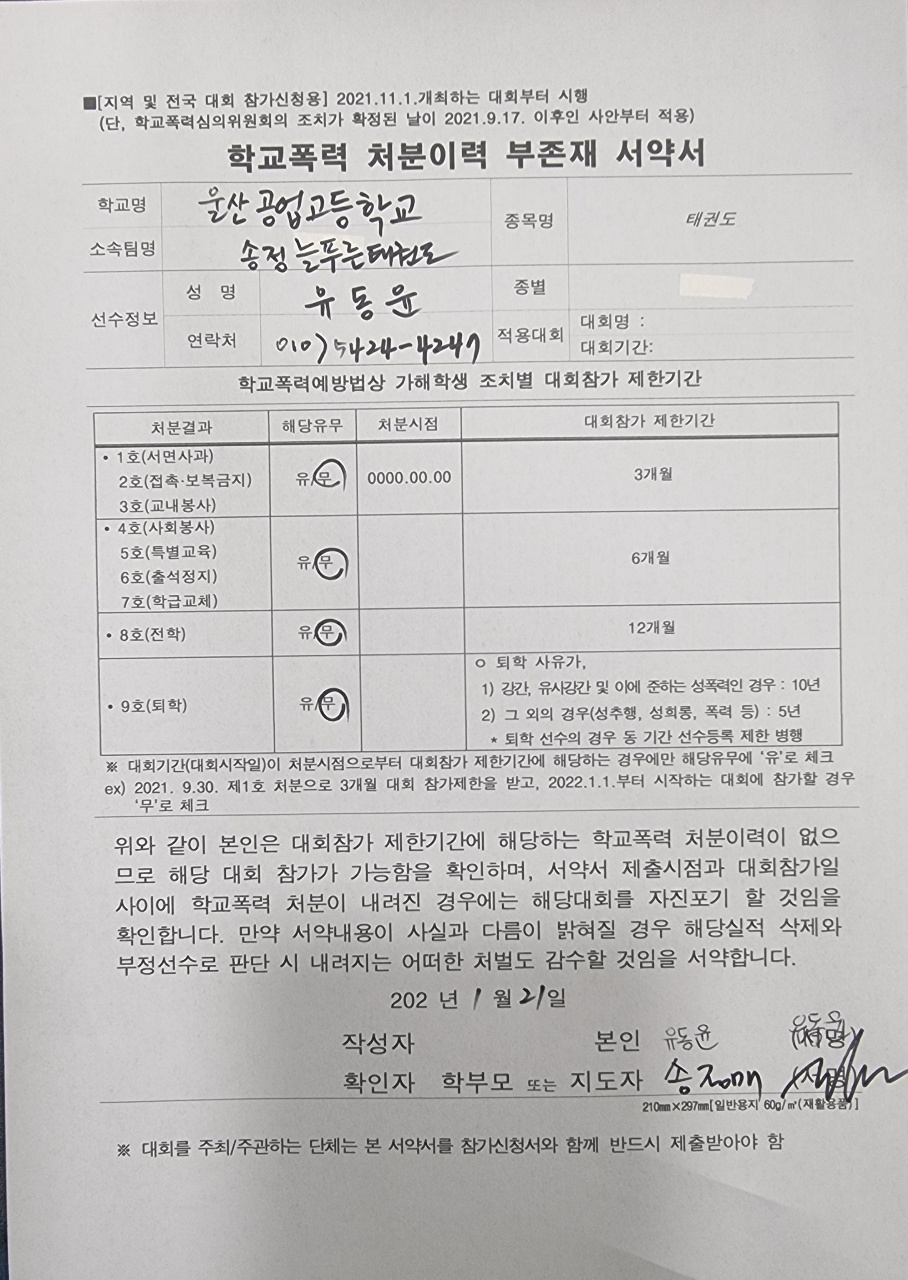 ■[지역 및 전국 대회 참가신청용] 2021.11.1.개최하는 대회부터 시행
(단, 학교폭력심의위원회의 조치가 확정된 날이 2021.9.17. 이후인 사안부터 적용)
학교폭력 처분이력 부존재 서약서
학교명 울산공업고등학교
종목명 태권도
소속팀명 송정 늘푸른태권도
선수정보
성 명 유동윤
종별
연락처 010)5424-4249
적용대회
대회명 :
대회기간:
학교폭력예방법상 가해학생 조치별 대회참가 제한기간
처분결과 해당유무 처분시점 대회참가 제한기간
• 1호(서면사과)
2호(접촉·보복금지) 유/무 0000.00.00 3개월
3호(교내봉사)
• 4호(사회봉사)
5호(특별교육)
유/무 6개월
6호(출석정지)
7호(학급교체)
• 8호(전학) 유/무 12개월
• 9호(퇴학) 유/무
ㅇ 퇴학 사유가,
1) 강간, 유사강간 및 이에 준하는 성폭력인 경우 : 10년
2) 그 외의 경우(성추행, 성희롱, 폭력 등) : 5년
* 퇴학 선수의 경우 동 기간 선수등록 제한 병행
※ 대회기간(대회시작일)이 처분시점으로부터 대회참가 제한기간에 해당하는 경우에만 해당유무에 ‘유’로 체크
ex) 2021. 9.30. 제1호 처분으로 3개월 대회 참가제한을 받고, 2022.1.1.부터 시작하는 대회에 참가할 경우
‘무’로 체크
위와 같이 본인은 대회참가 제한기간에 해당하는 학교폭력 처분이력이 없으
므로 해당 대회 참가가 가능함을 확인하며, 서약서 제출시점과 대회참가일
사이에 학교폭력 처분이 내려진 경우에는 해당대회를 자진포기 할 것임을
확인합니다. 만약 서약내용이 사실과 다름이 밝혀질 경우 해당실적 삭제와
부정선수로 판단 시 내려지는 어떠한 처벌도 감수할 것임을 서약합니다.
202 년 1 월 21일
작성자 본인 유동윤 유동윤 (서명)
확인자 학부모 또는 지도자 (서명
210㎜×297㎜[일반용지 60g/㎡(재활용품)]
※ 대회를 주최/주관하는 단체는 본 서약서를 참가신청서와 함께 반드시 제출받아야 함